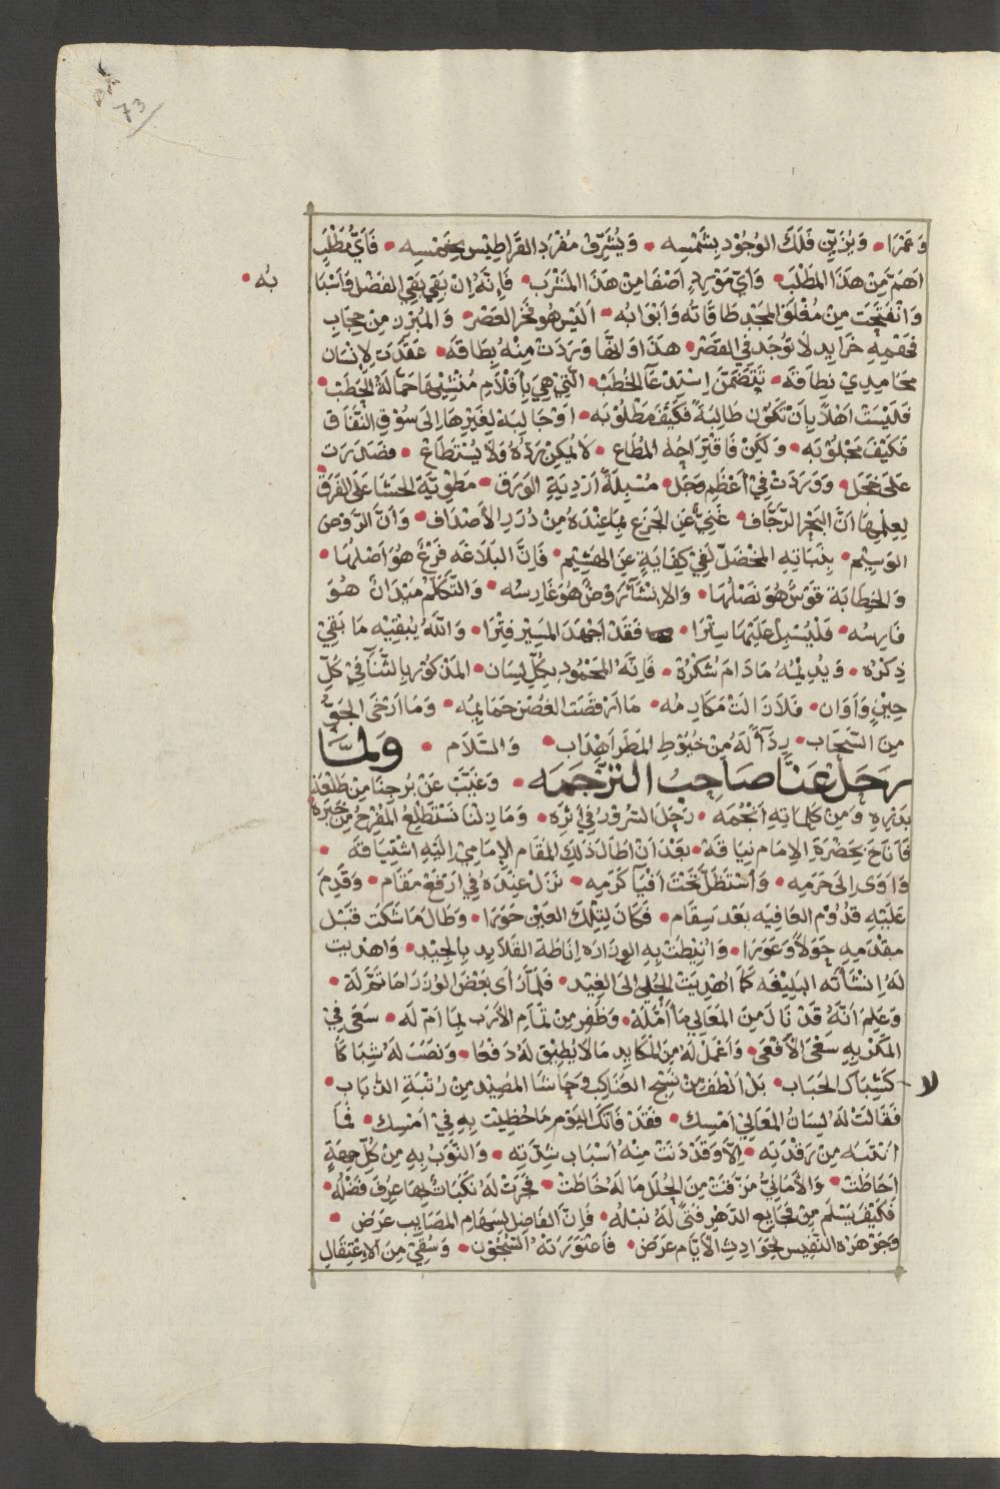 73
وَعَمْرَا • وَيُزَيِّن فَلَكَ الوُجُوْد بِشَمْسِه • وَيُشَرِّف مُفْرَد القَرَاطِيْس بِخَمْسِه • فَأَيُّ مَطْلَبٍ
اهَمّ مِنْ هَذَا المَطْلَب • وَأَيّ مَوْرِدٍ اصْفَا مِنْ هَذَا المَشْرَب • فَإِنَّه إِنْ بَقِيَ بَقِيَ الفَضْل وَأَسْبَا
بُه •
وَانْفَتَحَت مِنْ مُغْلَق المَجْد طَاقَاتُه وَأَبْوَابُه • اليْسَ هُو فَخْر العَصْر • وَالمُبْرِز مِنْ حِجَابِ
فَحْمِهِ خَرَايِد لَا تُوْجَد فِي القَصْر • هَذَا وَانَّهَا وَرَدَتْ مِنْهُ بِطَاقَه • عَقَدَتْ لِإنْسَان
مَحَامِدِيْ نِطَاقَه • تَتَضَمَّن اِسْتِدْعَآ الخُطَب • الَّتِيْ هِيَ بِأَقْلَامِ مُنْشِيْهَا حَمَّالَةُ الحَطَب •
فَلَيْسَتْ اهْلاً بِأَنْ تَكُوْن طَالِبَةً فَكَيْفَ مَطْلُوْبَه • اوْ جَالِبَة لِغَيْرِهَا إِلَى سُوْقِ النّفَاق
فَكَيْفَ مَجْلُوْبَه • وَلَكِنْ فَاقْتِرَاحُهُ المُطَاع • لَا يُمْكِنْ رَدُّهُ وَلَا يُسْتَطَاعْ • فَصَدَرَتْ
عَلَى خَجَل • وَوَرَدَتْ فِيْ أَعْظَمِ وَجَل • مُسْبِلَةً أَرْدِيَةِ الوَرَق • مَطْوِيَّةَ الحَشَا عَلَى الفَرَق
لِعِلْمِهَا انَّ البَحْر الرَّجَّاف • غَنِيٌّ عَنِ الجَزْعِ بِمَا عِنْدَهُ مِنْ دُرَرِ الأَصْدَاف • وَأَنَّ الرَّوْض
الوَسِيْم • بِنَبَاتِهِ المُخْضَلّ لَفِيْ كِفَايَةٍ عَنِ الهَشِيْم • فَإِنَّ البَلَاغَه فَرْعٌ هُوَ أَصْلُهَا •
وَالخَطَابَة قَوْسٌ هُوَ نَصْلُهَا • وَالانْشَآءَ رَوْضٌ هُوَ غَارِسُه • وَالتَّكَلُّم مَيْدَانٌ هُوَ
فَارِسُه • فَلْيُسْبِل عَلَيْهَا سِتْرَا • فَقَدْ أَجْهَدَ المَسِيْر فِتْرَا • وَاللّهُ يُبْقِيْه مَا بَقِيَ
ذِكْرُه • وَيُدِيْمُه مَا دَامَ شُكْرُهُ • فَإِنَّهُ المَحْمُوْد بِكُلِّ لِسَان • المَذْكُوْر بِالثَّنَآ فِيْ كُلِّ
حِيْنٍ وَأَوَان • فَلَا زَالَتْ مَكَارِمُه • مَا أَرْقَصَت الغُصْنَ حَمَايِمُه • وَمَا أَرْخَى الجَوُّ
مِنَ السَّحَاب • رِدَآءً لَهُ مِنْ خُيُوْطِ المَطَرِ أَهْدَاب • وَالسَّلَام • وَلَمَّا
رَحَلَ عَنَّا صَاحِبُ التَّرْجَمَه • وَغَيَّبَ عَنْ بُرْجِنَا مِنْ طَلْعَةِ
بَدْرِهِ وَمِنْ كَلِمَاتِهِ أَنْجُمَه • رَحَلَ السُّرُوْر فِيْ أَثَرِه • وَمَا زِلْنَا نَسْتَطْلِعُ المُفْرِحَ مِنْ خَبَرِهِ
فَأَنَاخَ بِحَضْرَةِ الإِمَام نِيَاقَه • بَعْدَ أَنْ أَطَالَ ذَلِكَ المَقَام الإِمَامِيّ إِلَيْهِ اشْتِيَاقَه •
وَأَوَى إِلَى حَرَمِه • وَأَسْتَظَلَّ تَحْتَ أَفْيَا كَرَمِه • نَزَلَ عِنْدَهُ فِي أَرْفَعِ مَقَام • وَقَدِمَ
عَلَيْهِ قُدُوْم العَافِيَه بَعْدَ سِقَام • فَكَانَ لِتِلْكَ العَيْن حَوَرَا • وَطَالَ مَا شَكَتْ قَبْلَ
مَقْدَمِهِ حَوَلاً وَعَوَرَا • وَأُنِيْطَتْ بِهِ الوِزَارَه إِنَاطَة القَلَايِد بِالجِيْد • وَاهْدِيَت
لَهُ إِنْشَآءَتُه البَلِيْغَه كَمَا أُهْدِيَتْ الحُلِي إِلَى الغِيْد • فَلَمَّا رَأَى بَعْضُ الوُزَرَا مَا تَمَّ لَهُ •
وَعَلِمَ أَنَّهُ قَدْ نَالَ مِنَ المَعَالِي مَا أَمَّلَهُ • وَظَفِرَ مِنْ تَمَامِ الأَرَبِ بِمَا أَمَّ لَه • سَعَى فِيْ
المَكْرِ بِهِ سَعْيَ الأَفْعَى • وَأَعْمَلَ لَهُ مِنَ المَكَايِدِ مَا لَا يُطِيْق لَهُ دَفْعَا • وَنَصَبَ لَهُ شِبَاكَاً
لا كَشِبَاكِ الحَبَاب • بَلْ أَلْطَف مِنْ نَسْجِ العَنَاكِب وَحَاشَا المَصِيْد مِنْ رُتْبَةِ الذُّبَاب •
فَقَالَتْ لَهُ لِسَانُ المَعَالِيْ أَمْسِك • فَقَدْ فَاتَكَ اليَوْم مَا حُظِيْتَ بِهِ فِيْ أَمْسِك • فَمَا
انْتَبَه مِنْ رَقْدَتِه • إِلَّا وَقَدْ دَنَتْ مِنْهُ أَسْبَاب شِدَّتِه • وَالنُّوَبُ بِهِ مِنْ كُلِّ جِهَةٍ
أَحَاطَتْ • وَالأَمَانِيُّ مَزَّقَتْ مِنَ الحُلَلِ مَا لَهُ خَاطَتْ • فَجَرَتْ لَهُ نَكَبَاتٌ بِهَا عُرِفَ فَضْلُهُ •
فَكَيْفَ يَسْلَم مِنْ فَجَايِعِ الدَّهْرِ فَتَىً لَهُ نُبْلُه • فَإِنّ الفَاضِل لِسِهَامِ المَصَايِب غَرَض •
وَجَوْهَرُهُ النَّفِيْس لِحَوَادِثِ الأَيَّام عَرَض • فَاعْتَوَرَتْهُ السُّجُوْن • وَسُقِيَ مِنَ الإِعْتِقَالِ